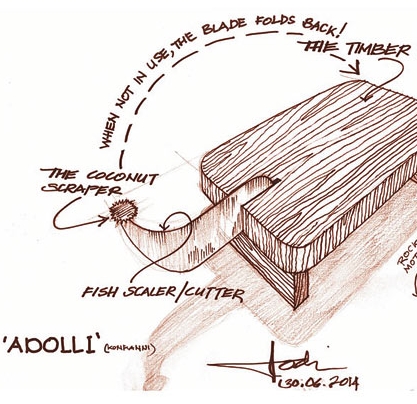 WHEN NOT IN USE, THE BLADE FOLDS BACK!
THE TIMBER
THE COCONUT
SCRAPER
FISH SCALER/CUTTER
'ADOLLI' (KONKANNI)
30.06.2014